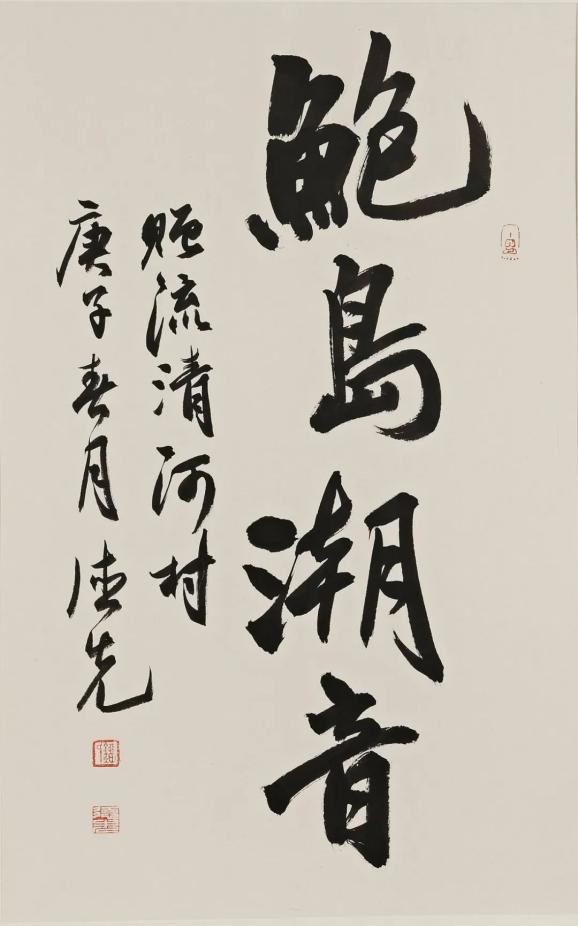 鮑島潮音
流清河村
庚子春月 德先